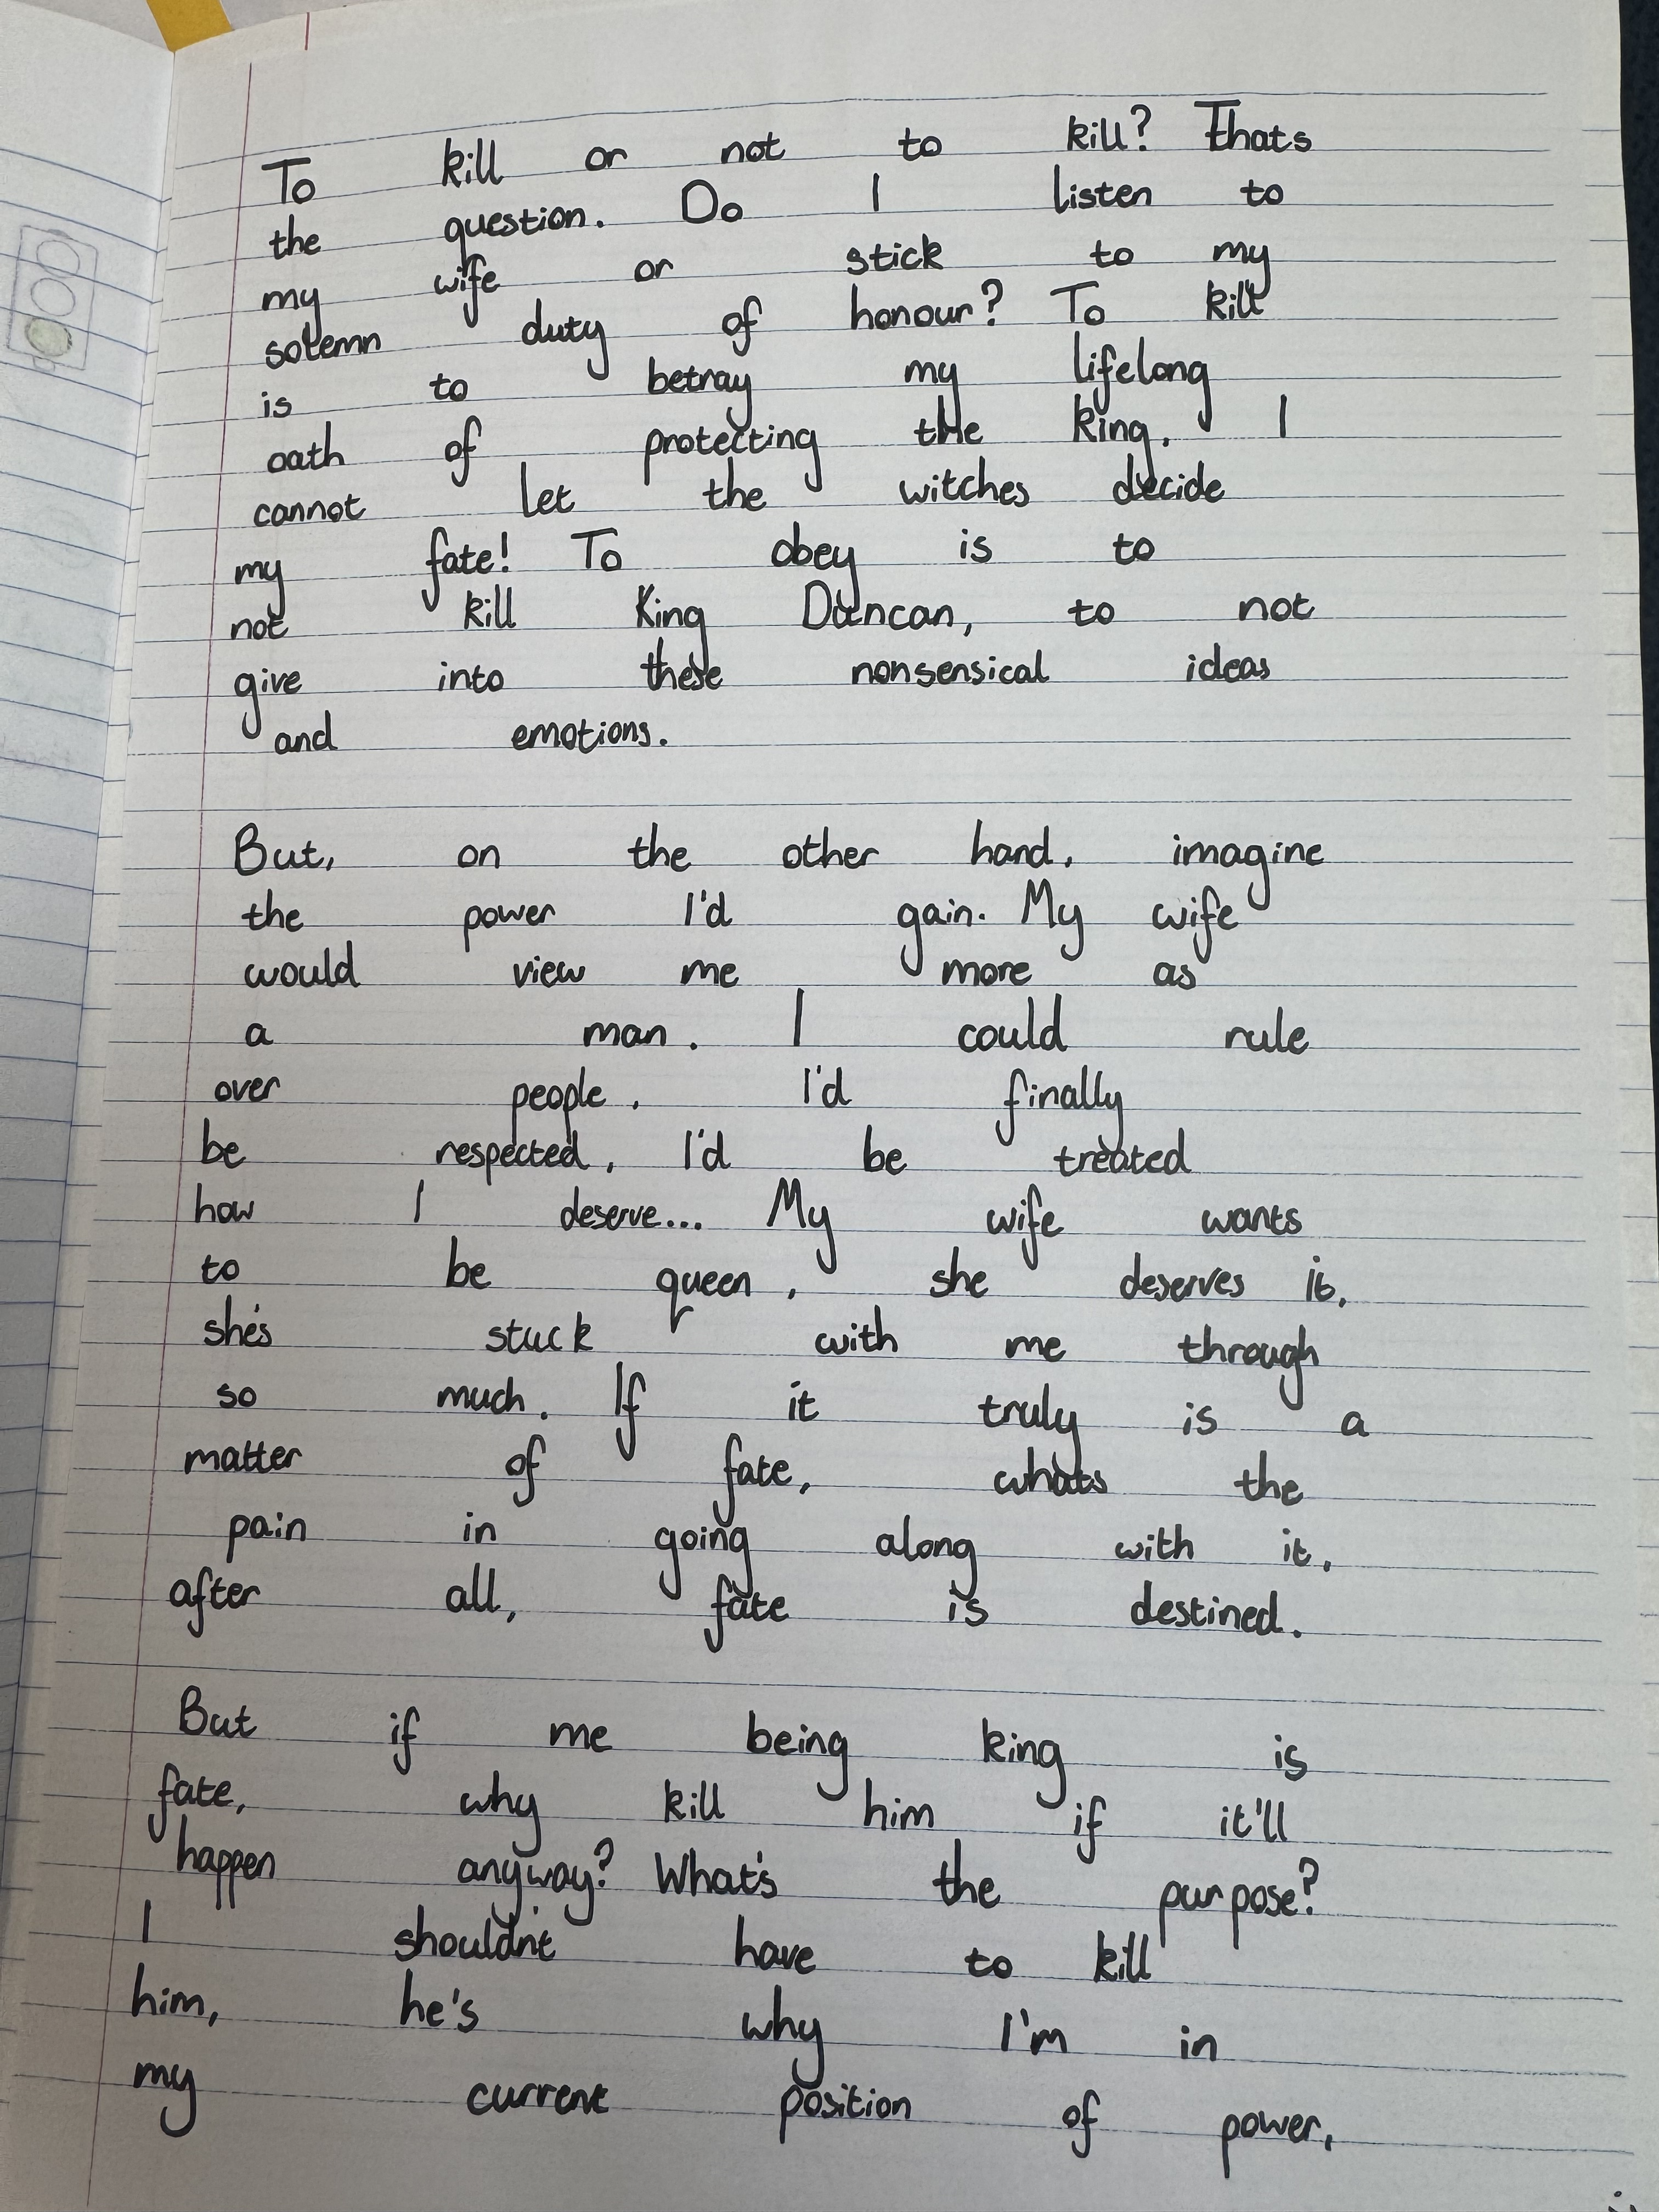 To kill or not to kill? Thats
the question. Do I listen to
my wife or stick to my
solemn duty of honour? To kill
is to betray my lifelong
oath of protecting the king. I
cannot let the witches decide
my fate! To obey is to
not kill King Duncan, to not
give into these nonsensical ideas
and emotions.
But, on the other hand, imagine
the power I'd gain. My wife
would view me more as
a man. I could rule
over people, I'd finally
be respected, I'd be treated
how I deserve... My wife wants
to be queen, she deserves it,
she's stuck with me through
so much. If it truly is a
matter of fate, whats the
pain in going along with it,
after all, fate is destined.
But if me being king is
fate, why kill him if it'll
happen anyway? What's the purpose?
I shouldn't have to kill
him, he's why I'm in
my current position of power,